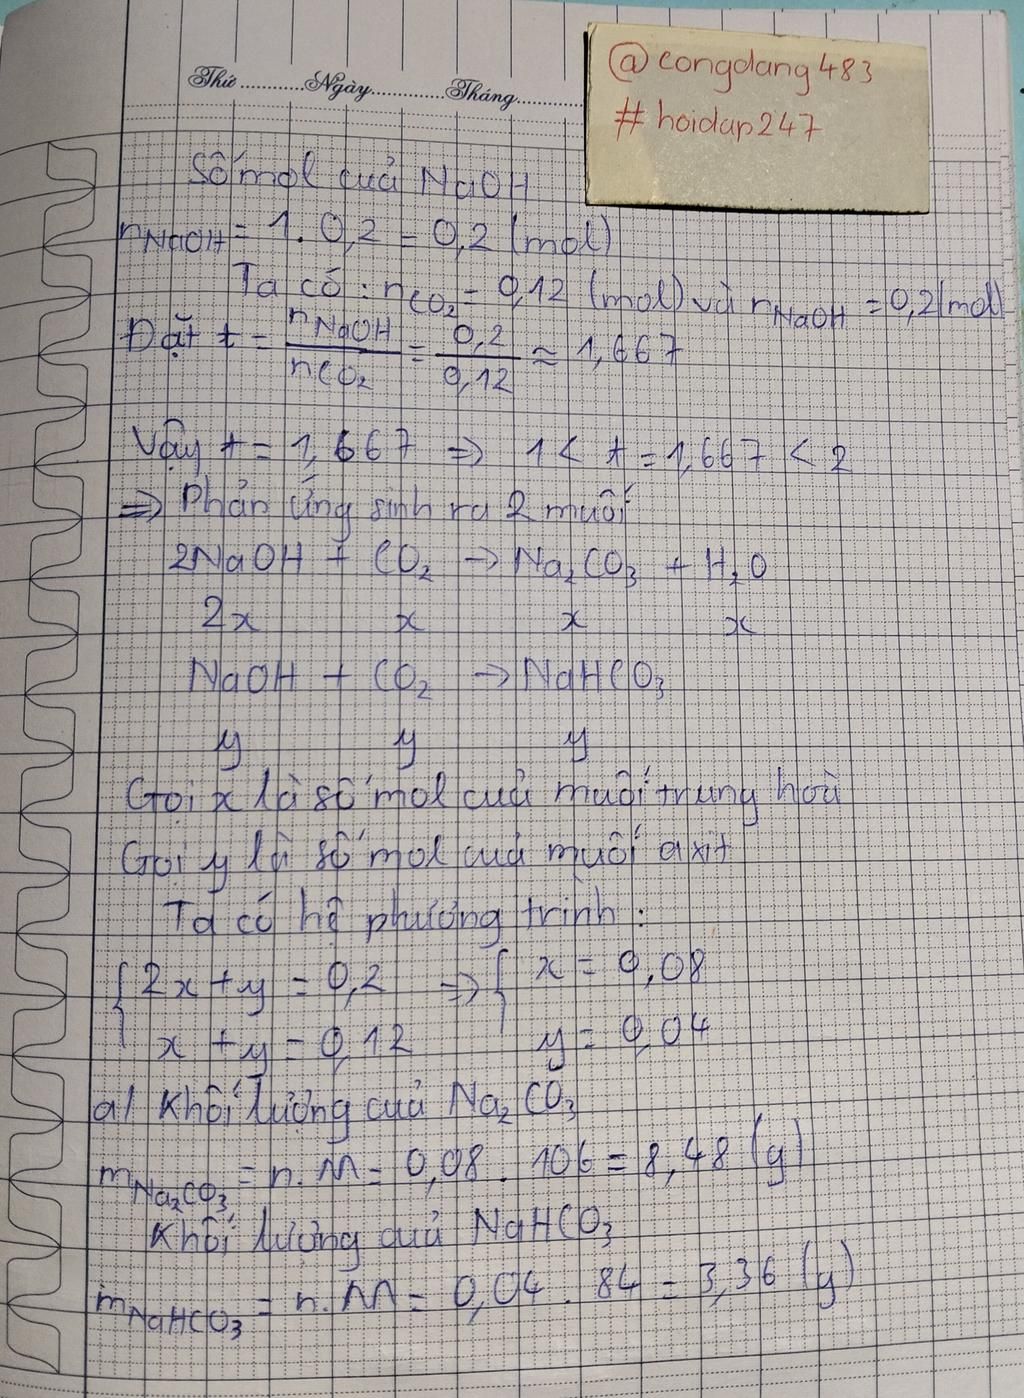 Thứ..........Ngày..........Tháng..........
@congdang483
# hoidap247
Số mol của NaOH
nNaOH = 1. 0,2 = 0,2 (mol)
Ta có : nCO₂ = 0,12 (mol) và nNaOH = 0,2 (mol)
Đặt t = nNaOH / nCO₂ = 0,2 / 0,12 ≈ 1,667
Vậy t = 1,667 => 1 < t = 1,667 < 2
=> Phản ứng sinh ra 2 muối
2NaOH + CO₂ -> Na₂CO₃ + H₂O
2x x x x
NaOH + CO₂ -> NaHCO₃
y y y
Gọi x là số mol của muối trung hoà
Gọi y là số mol của muối axit
Ta có hệ phương trình :
{ 2x + y = 0,2 => { x = 0,08
x + y = 0,12 y = 0,04
a/ Khối lượng của Na₂CO₃
mNa₂CO₃ = n. M = 0,08 . 106 = 8,48 (g)
Khối lượng của NaHCO₃
mNaHCO₃ = n. M = 0,04 . 84 = 3,36 (g)